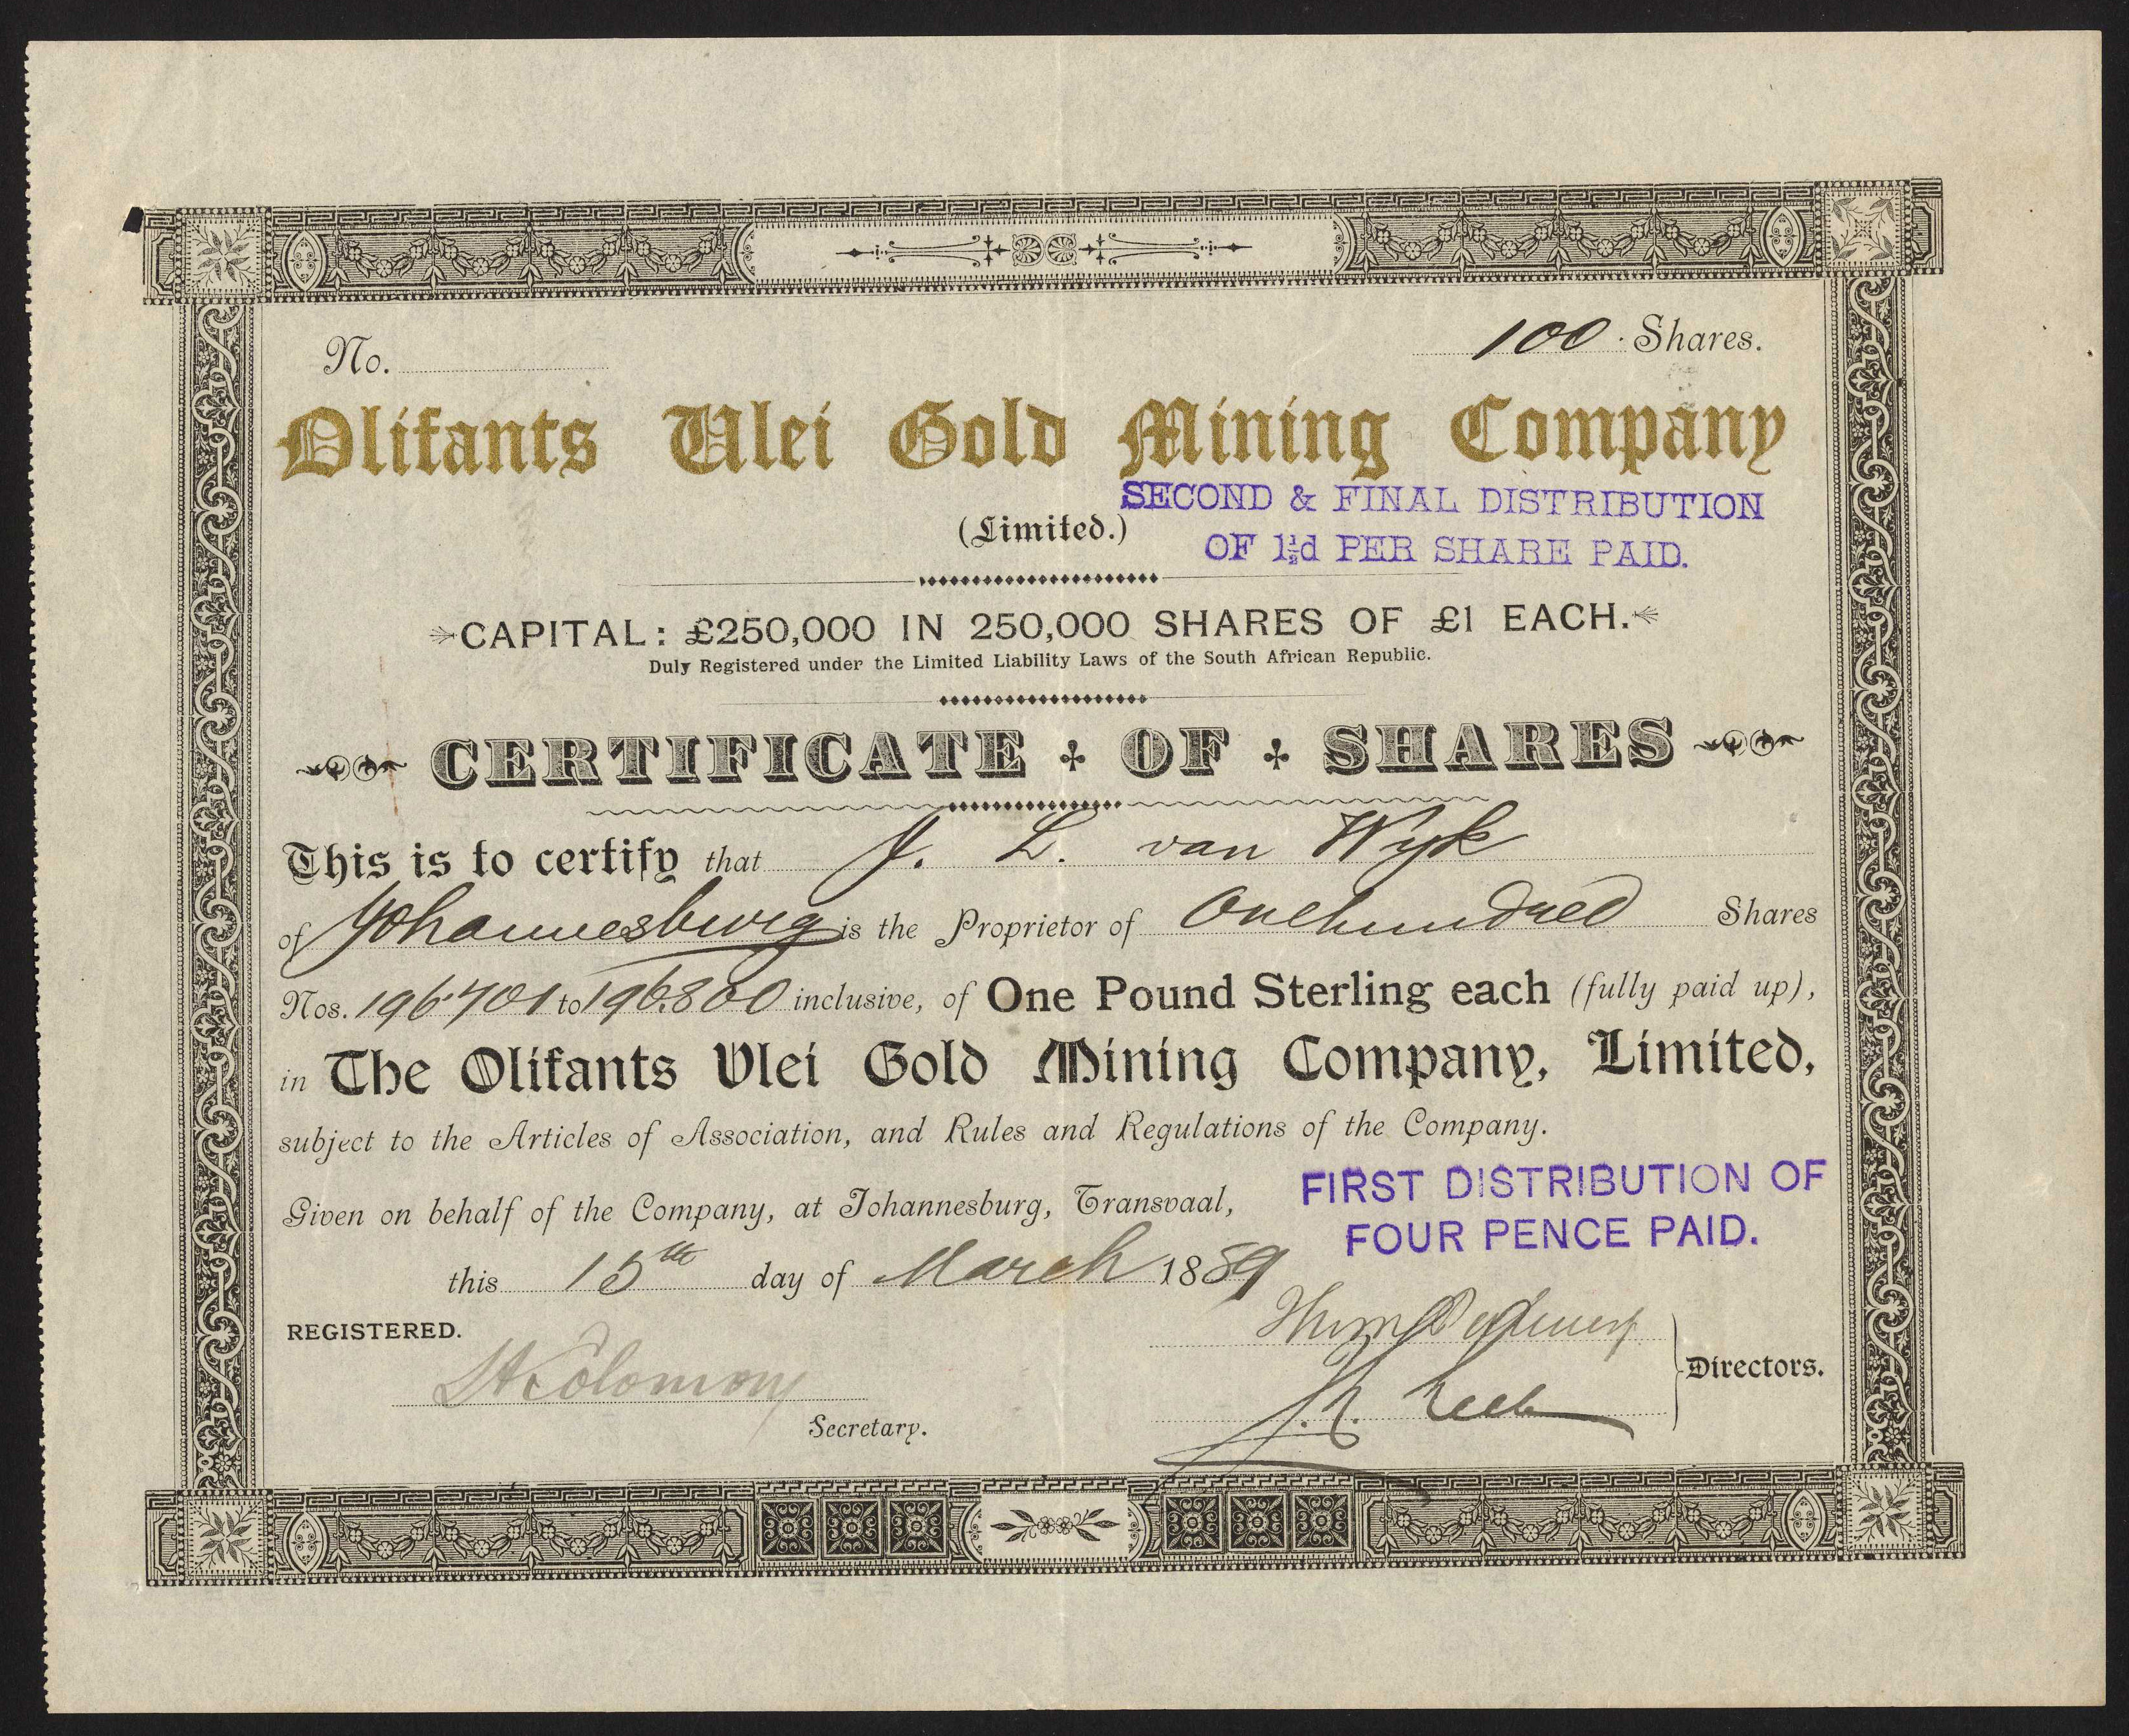 No.
100 Shares.
Olifants Vlei Gold Mining Company
(Limited.)
SECOND & FINAL DISTRIBUTION
OF 1½d PER SHARE PAID.
CAPITAL: £250,000 IN 250,000 SHARES OF £1 EACH.
Duly Registered under the Limited Liability Laws of the South African Republic.
CERTIFICATE OF SHARES
This is to certify that J. L. van Wyk
of Johannesburg is the Proprietor of One hundred Shares
Nos. 196701 to 196800 inclusive, of One Pound Sterling each (fully paid up),
in The Olifants Vlei Gold Mining Company, Limited,
subject to the Articles of Association, and Rules and Regulations of the Company.
FIRST DISTRIBUTION OF
FOUR PENCE PAID.
Given on behalf of the Company, at Johannesburg, Transvaal,
this 15th day of March 1889
REGISTERED.
Solomon
Secretary.
Directors.